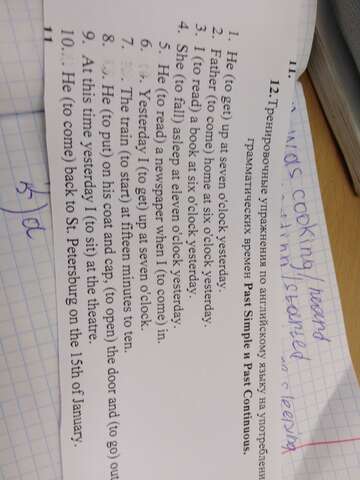 11.
12. Тренировочные упражнения по английскому языку на употреблени
грамматических времен Past Simple и Past Continuous.
1. He (to get) up at seven o'clock yesterday.
2. Father (to come) home at six o'clock yesterday.
3. I (to read) a book at six o'clock yesterday.
4. She (to fall) asleep at eleven o'clock yesterday.
5. He (to read) a newspaper when I (to come) in.
6. Yesterday I (to get) up at seven o'clock.
7. The train (to start) at fifteen minutes to ten.
8. He (to put) on his coat and cap, (to open) the door and (to go) out
9. At this time yesterday I (to sit) at the theatre.
10. He (to come) back to St. Petersburg on the 15th of January.
11
cooking / heard
/ started
sleeping
5) d